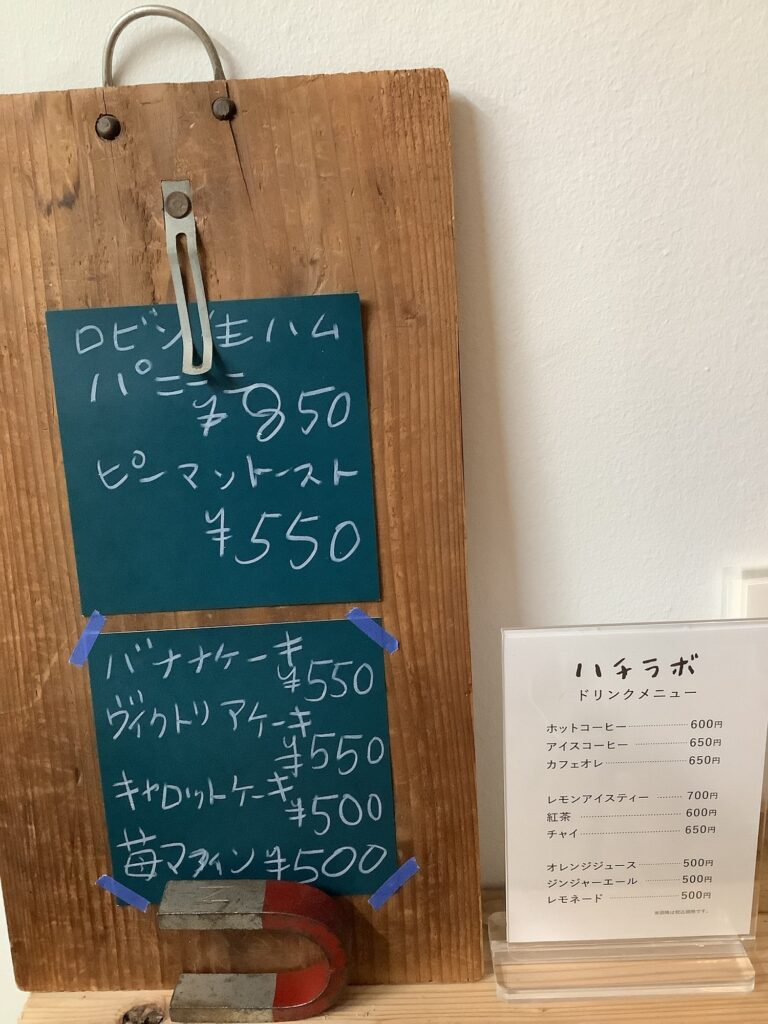 ロビン生ハム
パニーニ
¥850
ピーマントースト
¥550
バナナケーキ
¥550
ヴィクトリアケーキ
¥550
キャロットケーキ
¥500
苺マフィン ¥500
ハチラボ
ドリンクメニュー
ホットコーヒー 600円
アイスコーヒー 650円
カフェオレ 650円
レモンアイスティー 700円
紅茶 600円
チャイ 650円
オレンジジュース 500円
ジンジャーエール 500円
レモネード 500円
※価格は税込価格です。